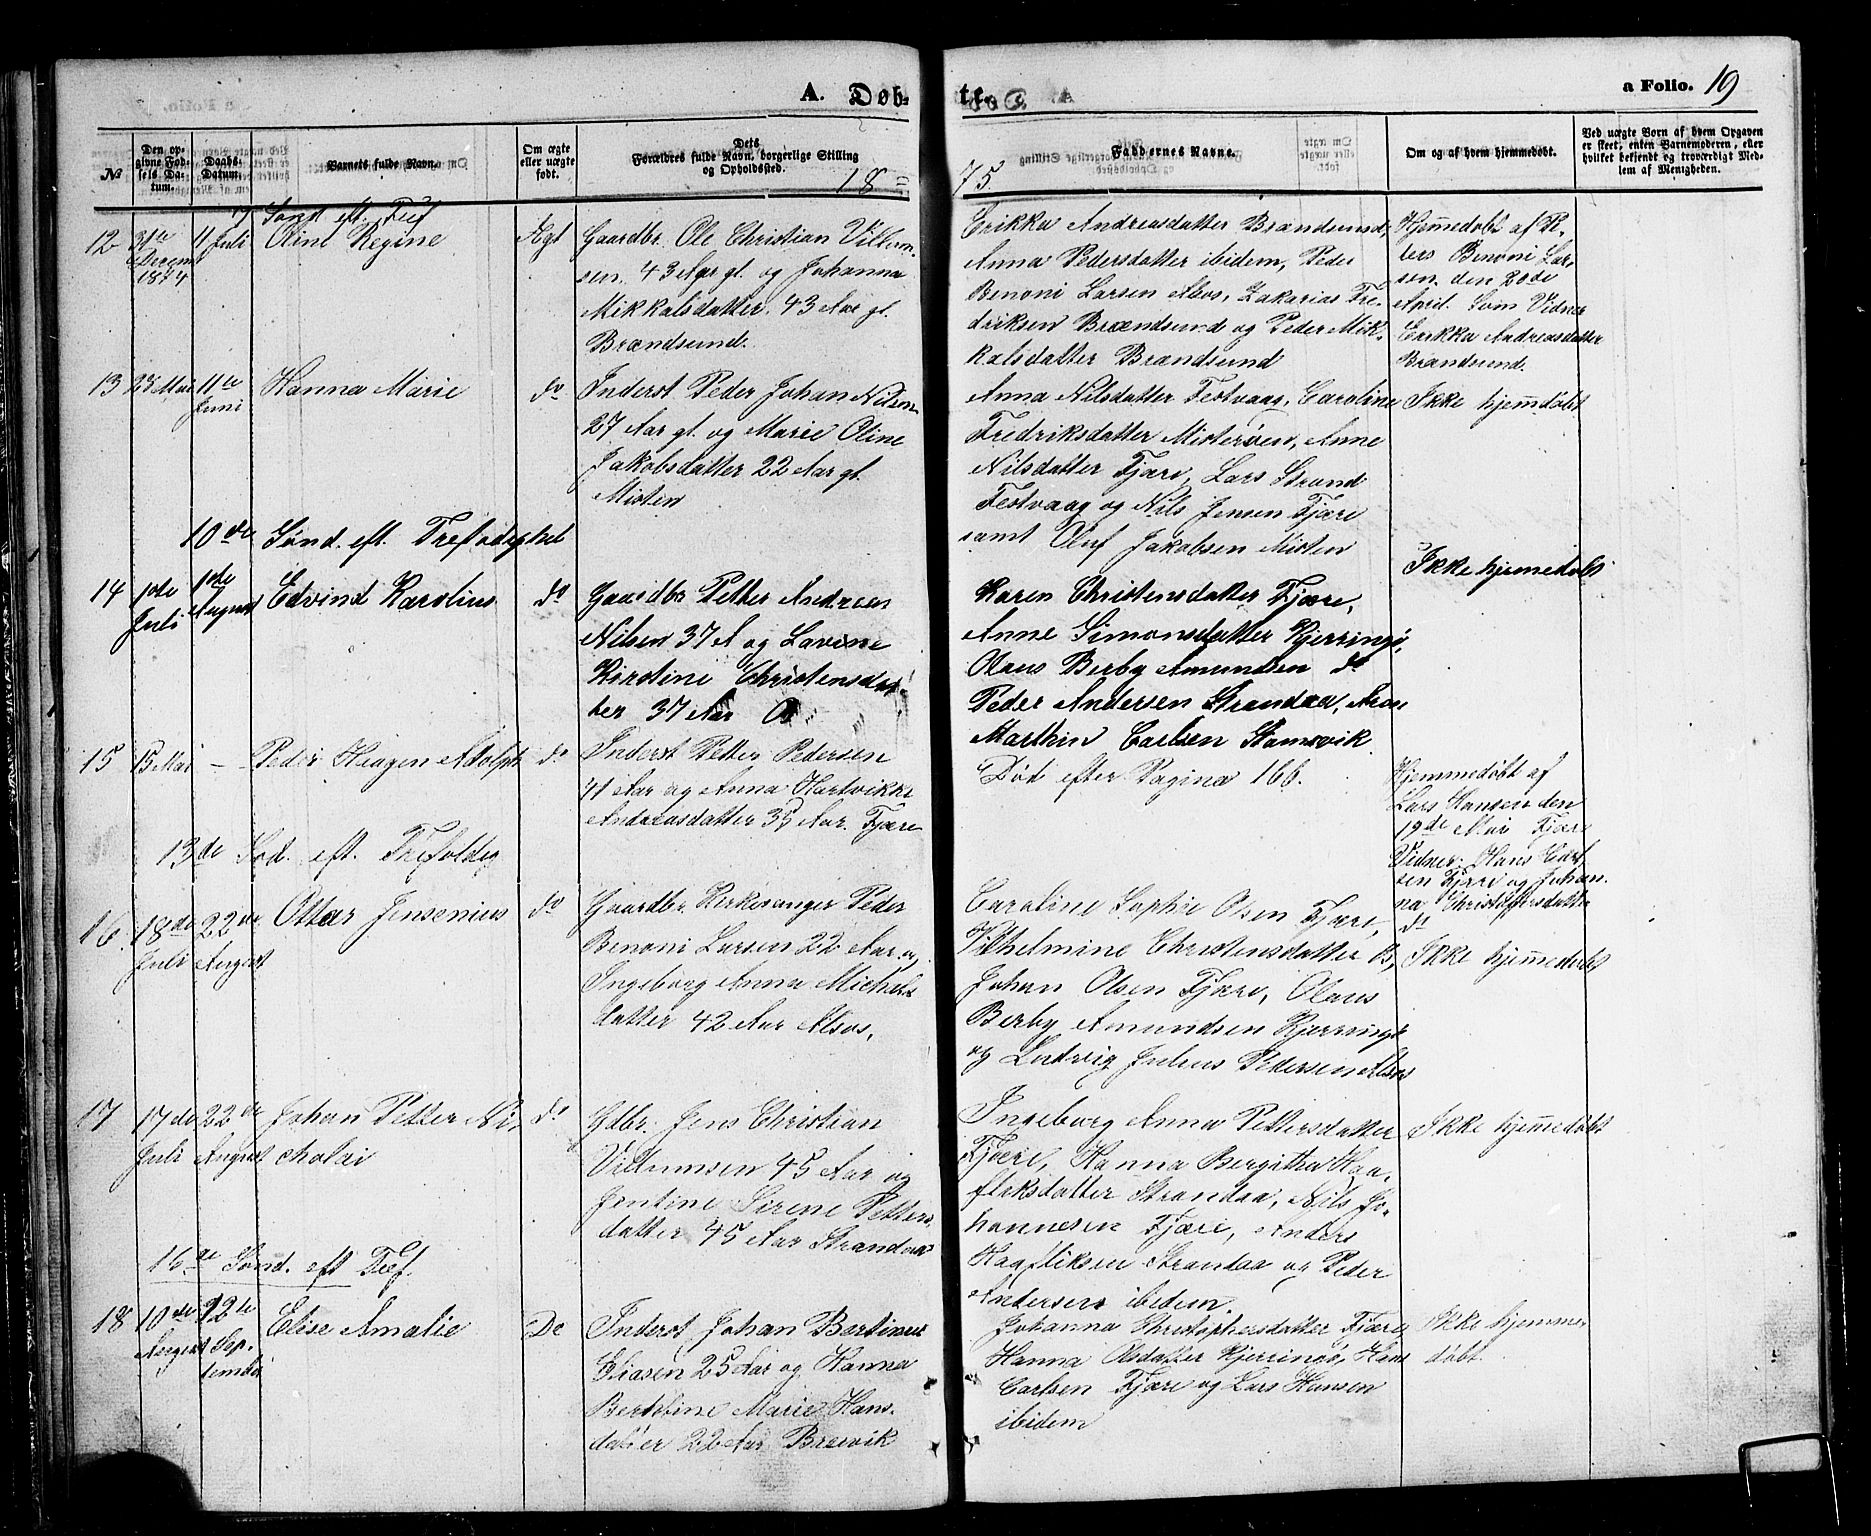 A. Døb-
te.
a Folio. 19
№
Den op-
givne Fød-
sels Da-
tum.
Daabs-
Datum.
Barnets fulde Navn.
Om ægte
eller uægte
født.
Dets
Forældres fulde Navn, borgerlige Stilling
og Opholdssted.
18
75.
Faddernes Navne.
Om og af hvem hjemmedøbt.
Ved uægte Børn af hvem Opgaven
er skeet, enten Barnemoderen, eller
hvilket bekjendt og troværdigt Med-
lem af Menigheden.
7 Sønd. eft. Tref
12
31te
1874
11 Juli
Oline Regine
Ægt
Gaardbr. Ole Christian Villum-
sen. 43 Aar gl. og Johanna
Mikkalsdatter. 43 Aar gl.
Brændsund.
Erikka Andreasdatter Brændsund,
Anna Pedersdatter ibidem, Peder
Benoni Larsen Alsos, Zakarias Fre-
driksen Brændsund og Peder Mik-
kalsdatter Brændsund
Hjemedøbt af Pe-
ters Benoni Lar-
sen. den 20de
April. Som Vidner
Erikka Andreasdatter
Brændsund.
13
23 Mai
11te
Juni
Hanna Marie
do
Inderst Peder Johan Nilsen
27 Aar gl. og Marie Oline
Jakobsdatter 22 Aar gl.
Misten
Anna Nilsdatter Festvaag, Caroline
Fredriksdatter Misterøen, Anne
Nilsdatter Fjære, Lars Strand
Festvaag og Nils Jensen Fjære
samt Oluf Jakobsen Misten
Ikke hjemdøbt
10de Sønd. eft. Trefoldighet
14
1ste
Juli
1ste
August
Edvind Karolius
do
Gaardbr Petter Andreas
Nilsen 37 A og Lavine
Kirstine Christensdat-
ter 37 Aar
Karen Christensdatter Fjære,
Anne Simonsdatter Kjerringø,
Olaus Berby Amundsen do
Peder Andersen Strandaa, Aron
Marthin Carlsen Stamsvik
Ikke hjemmedøbt
15
15 Mai
Peder Hagen Adolph
do
Inderst Petter Pedersen
41 Aar og Anna Hartvikke
Andreasdatter 35 Aar. Fjære
Død efter Pagina 166.
Hjemmedøbt af
Lars Hansen den
19de Mai Fjære
Vidner: Hans Carl-
sen Fjære og Johan-
na Christophersdatter
do
13de Sød. eft. Trefoldig
16
18de
Juli
22de
August
Ottar Jensenius
do
Gaardbr. Kirkesanger Peder
Benoni Larsen 22 Aar og
Ingeborg Anna Michels
datter 42 Aar Alsos,
Caroline Sophie Olsen Fjære,
Vilhelmine Christensdatter B,
Johan Olsen Fjære, Olaus
Berby Amundsen Kjerringø
og Ludvig Julius Pedersen Alsos
Ikke hjemmedøbt
17
17de
Juli
22de
August
Johan Petter Ni-
cholai
do
Gdbr. Jens Christian
Villumsen 45 Aar og
Jentine Sirene Petters
datter 45 Aar Strandaa
Ingeborg Anna Pettersdatter
Fjære, Hanna Bergitha Haa-
fleksdatter Strandaa, Nils Jo-
hannesen Fjære, Anders
Haafliksen Strandaa og Peder
Andersen ibidem.
Ikke hjemmedøbt
16de Sønd. eft Tref.
18
10de
August
12te
Sep-
tember
Elise Amalie
Do
Inderst Johan Bertinus
Eliasen 25 Aar og Hanna
Bertoline Marie Hans-
datter 22 Aar Breivik
Johanna Christophersdatter Fjære,
Hanna Olsdatter Kjerringø, Hans
Carlsen Fjære og Lars Hansen
ibidem
Ikke hjemme
døbt.